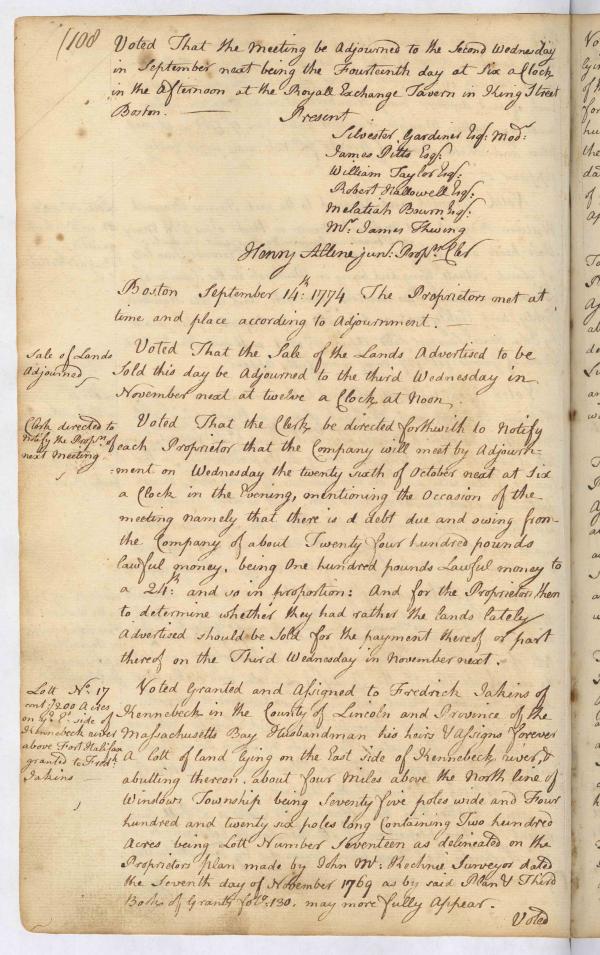 108
Voted That the Meeting be Adjourned to the Second Wednesday
in September next being the Fourteenth day at Six a Clock
in the Afternoon at the Royall Exchange Tavern in King Street
Boston. —
Present
Silvester Gardiner Esqr: Modr:
James Pitts Esqr:
William Taylor Esqr:
Robert Hallowell Esqr:
Melatiah Bourn Esqr:
Mr. James Thwing
Henry Allene junr: Proprs Cler
Boston September 14th: 1774 The Proprietors met at
time and place according to Adjournment. —
Sale of Lands
Adjourned
Voted That the Sale of the Lands Advertised to be
Sold this day be Adjourned to the third Wednesday in
November next at twelve a Clock at Noon
Clerk directed to
Notify the Proprs of
next Meeting
Voted That the Clerk be directed forthwith to Notify
each Proprietor that the Company will meet by Adjourn-
-ment on Wednesday the twenty sixth of October next at Six
a Clock in the Evening, mentioning the Occasion of the
meeting namely that there is a debt due and owing from
the Company of about Twenty four hundred pounds
lawful money, being One hundred pounds Lawful money to
a 24th: and so in proportion: And for the Proprietors then
to determine whether they had rather the lands lately
Advertised should be Sold for the payment thereof or part
thereof on the Third Wednesday in November next.
Lott No. 17
contg 200 Acres
on ye Et. side of
Kennebeck river
above Fort Halifax
granted to Fredk
Jakins
Voted Granted and Assigned to Fredrick Jakins of
Kennebeck in the County of Lincoln and Province of the
Massachusetts Bay Husbandman his heirs & Assigns forever
A lott of land lying on the East side of Kennebeck river, &
abutting thereon about four Miles above the North line of
Winslow Township being Seventy five poles wide and Four
hundred and twenty six poles long Containing Two hundred
Acres being Lott Number Seventeen as delineated on the
Proprietors plan made by John Mc: Kechnie Surveyor dated
the Seventh day of November 1769 as by said Plan & Third
Book of Grants foo: 130. may more fully Appear.
Voted